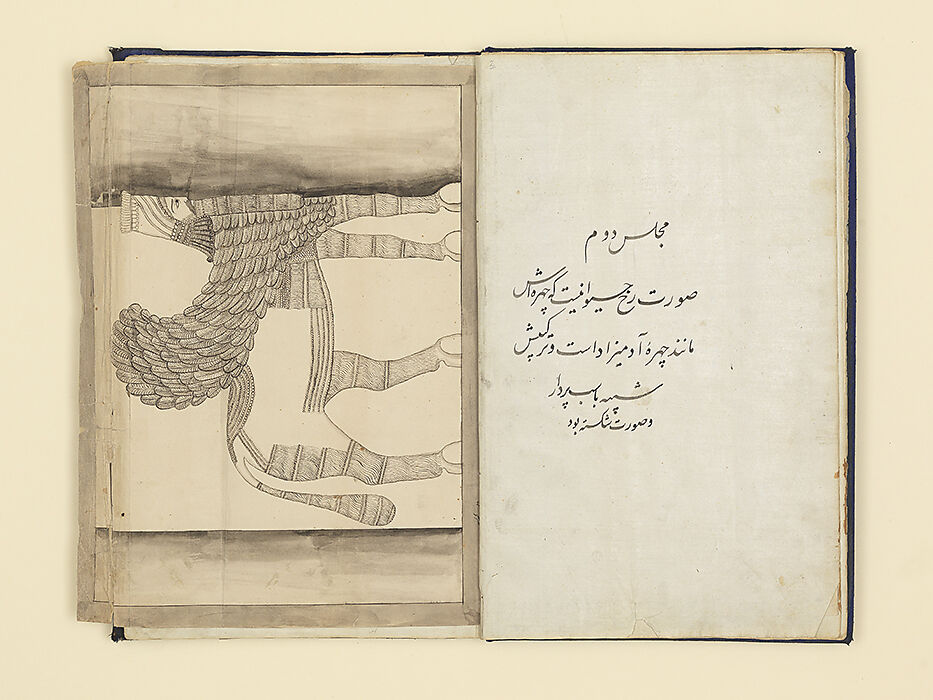 مجلس دوم
صورت رخ حیوانیست که چهره‌اش
مانند چهرهٔ آدمیزاد است و ترکیبش
شبیه باسب پردار
وصورت شکسته بود